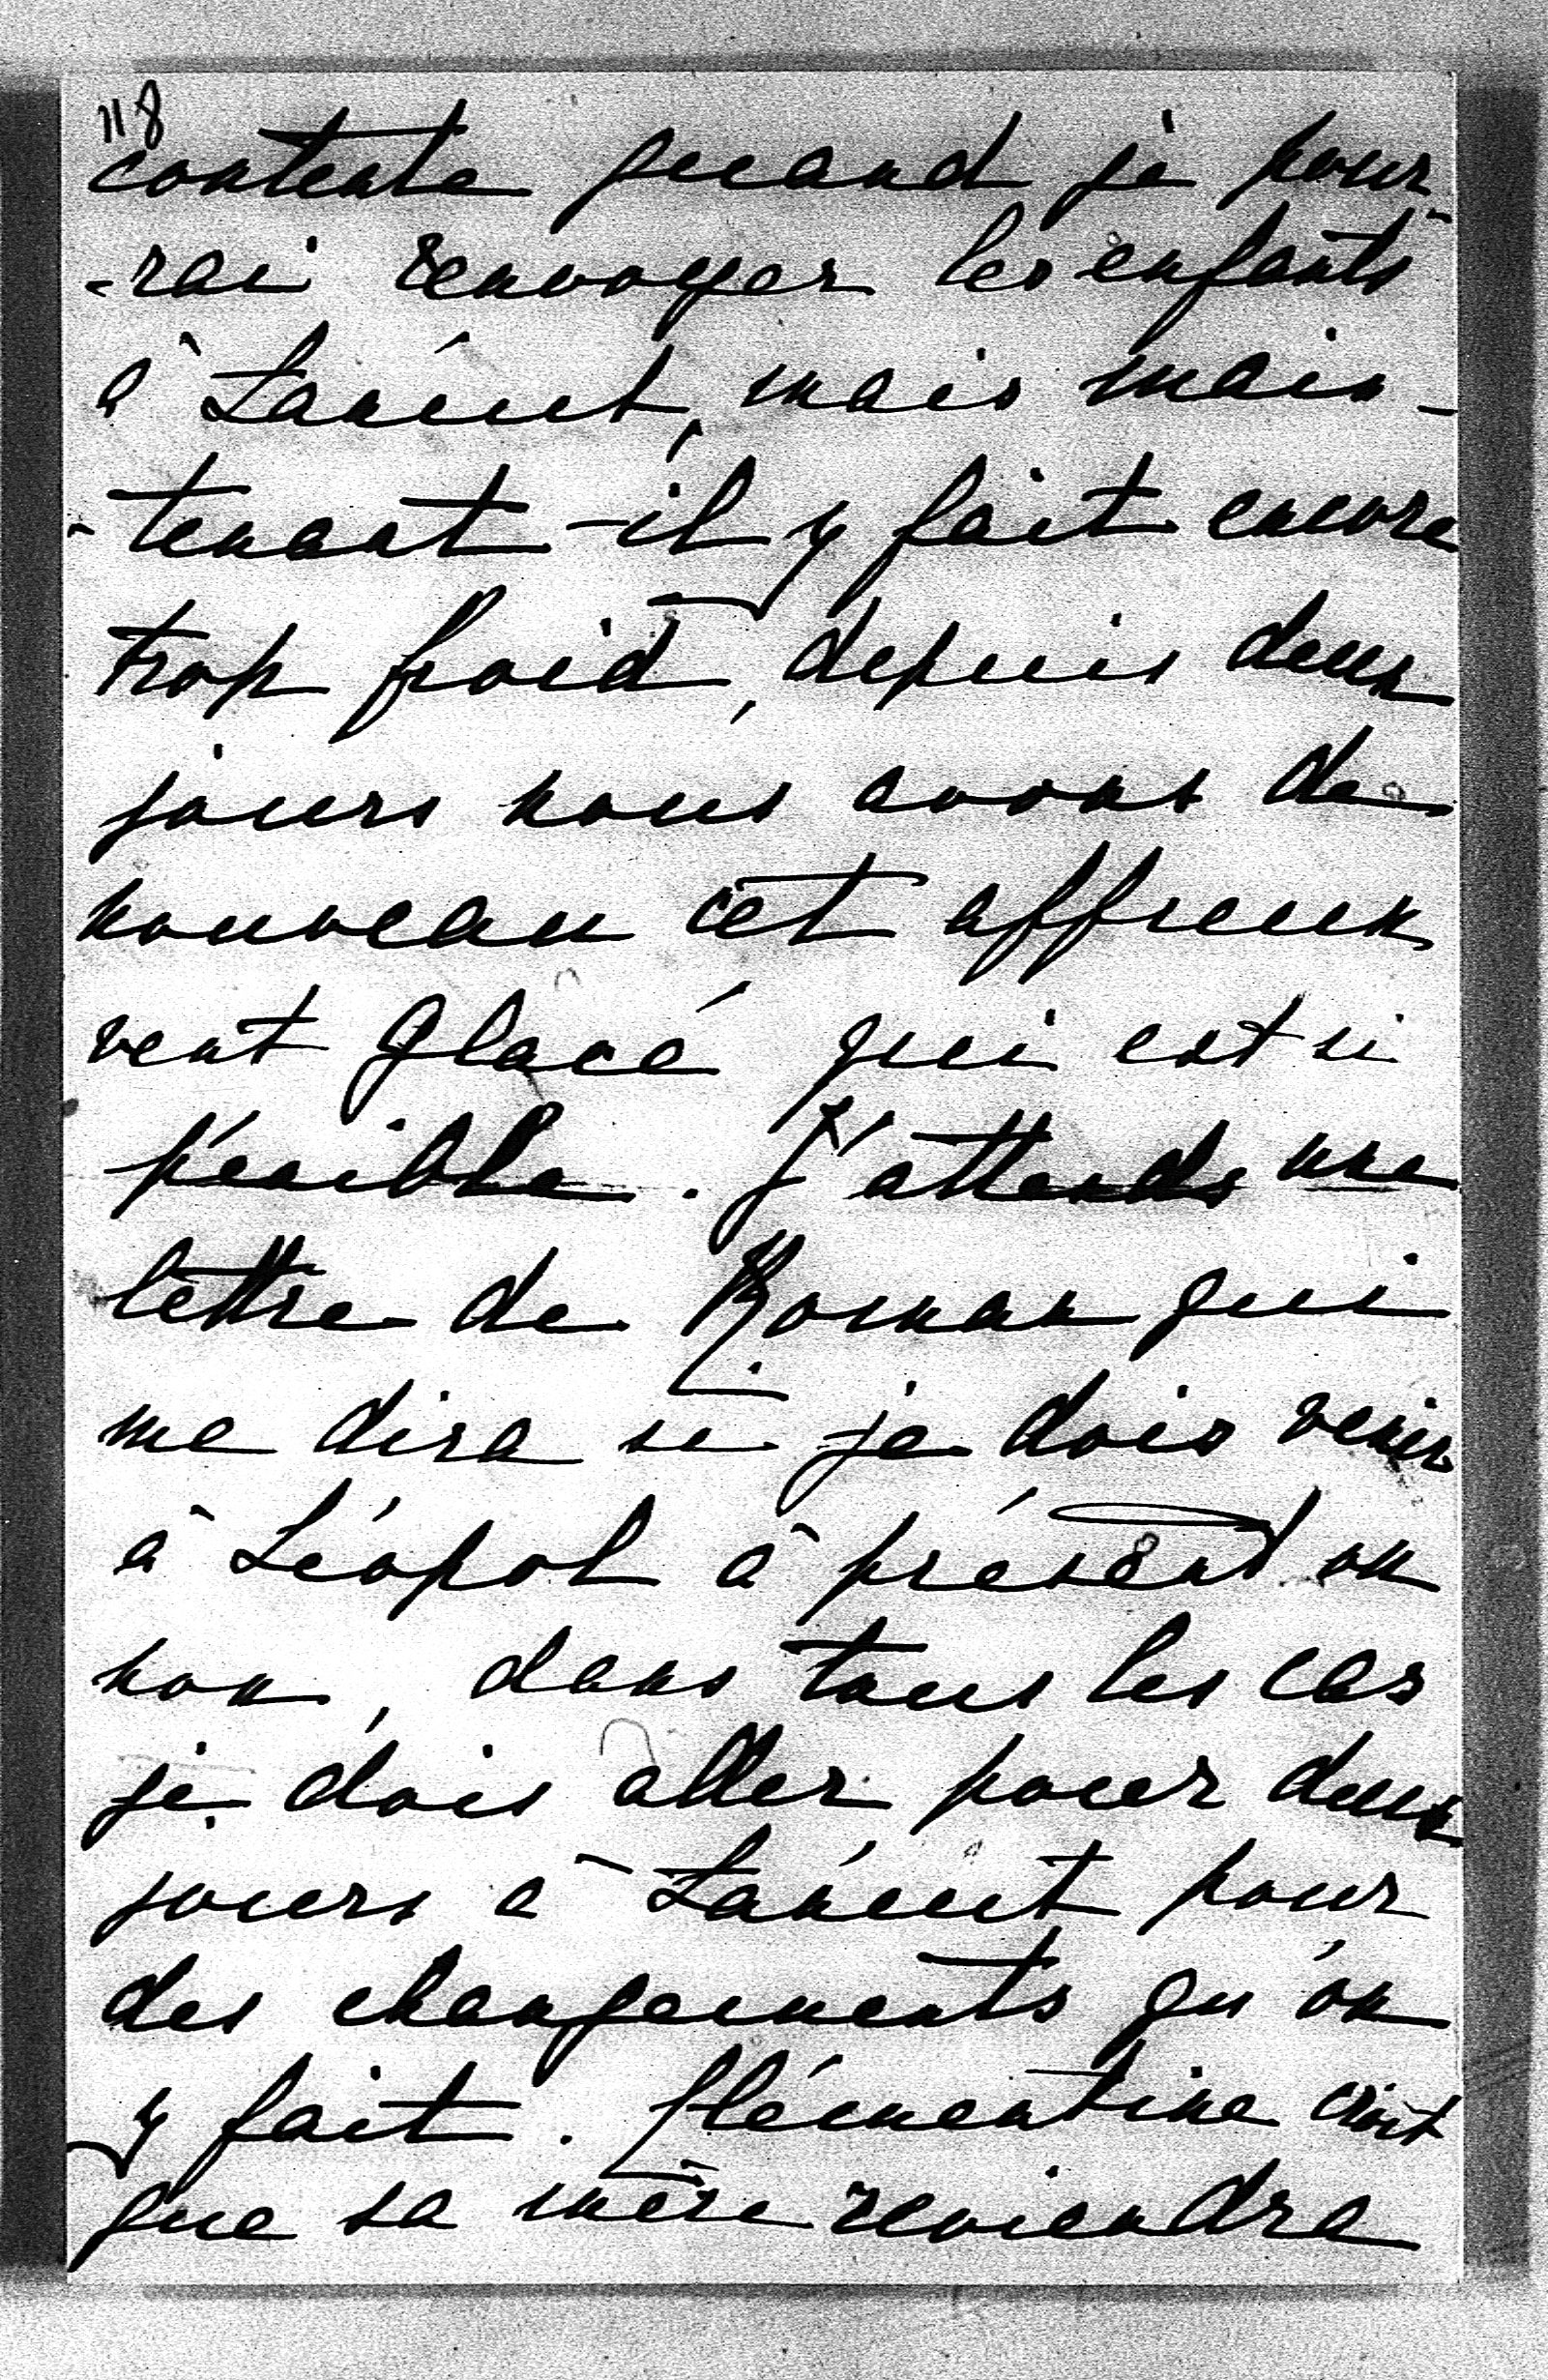 118
contente quand je pour-
-rai renvoyer les enfants
à Łańcut, mais main-
-tenant il y fait encore
trop froid, depuis deux
jours nous avons de
nouveau cet affreux
vent glacé qui est si
pénible. J'attends une
lettre de Roman qui
me dira si je dois venir
à Léopol à présent ou
non, dans tous les cas
je dois aller pour deux
jours à Łańcut pour
des changements qu'on
y fait. Clémentine croit
que sa mère reviendra